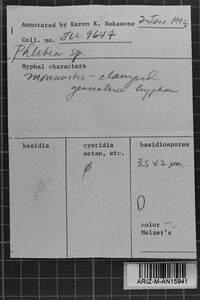 2 June 1992
Annotated by Karen K. Nakasone
Coll. no. JLL 9647
Phlebia sp.
Hyphal characters
monomitic - clamped
generative hyphae
basidia
cystidia
setae, etc.
basidiospores
φ
φ
3.5 x 2 μm
color -
Melzer's -
ARIZ-M-AN15941